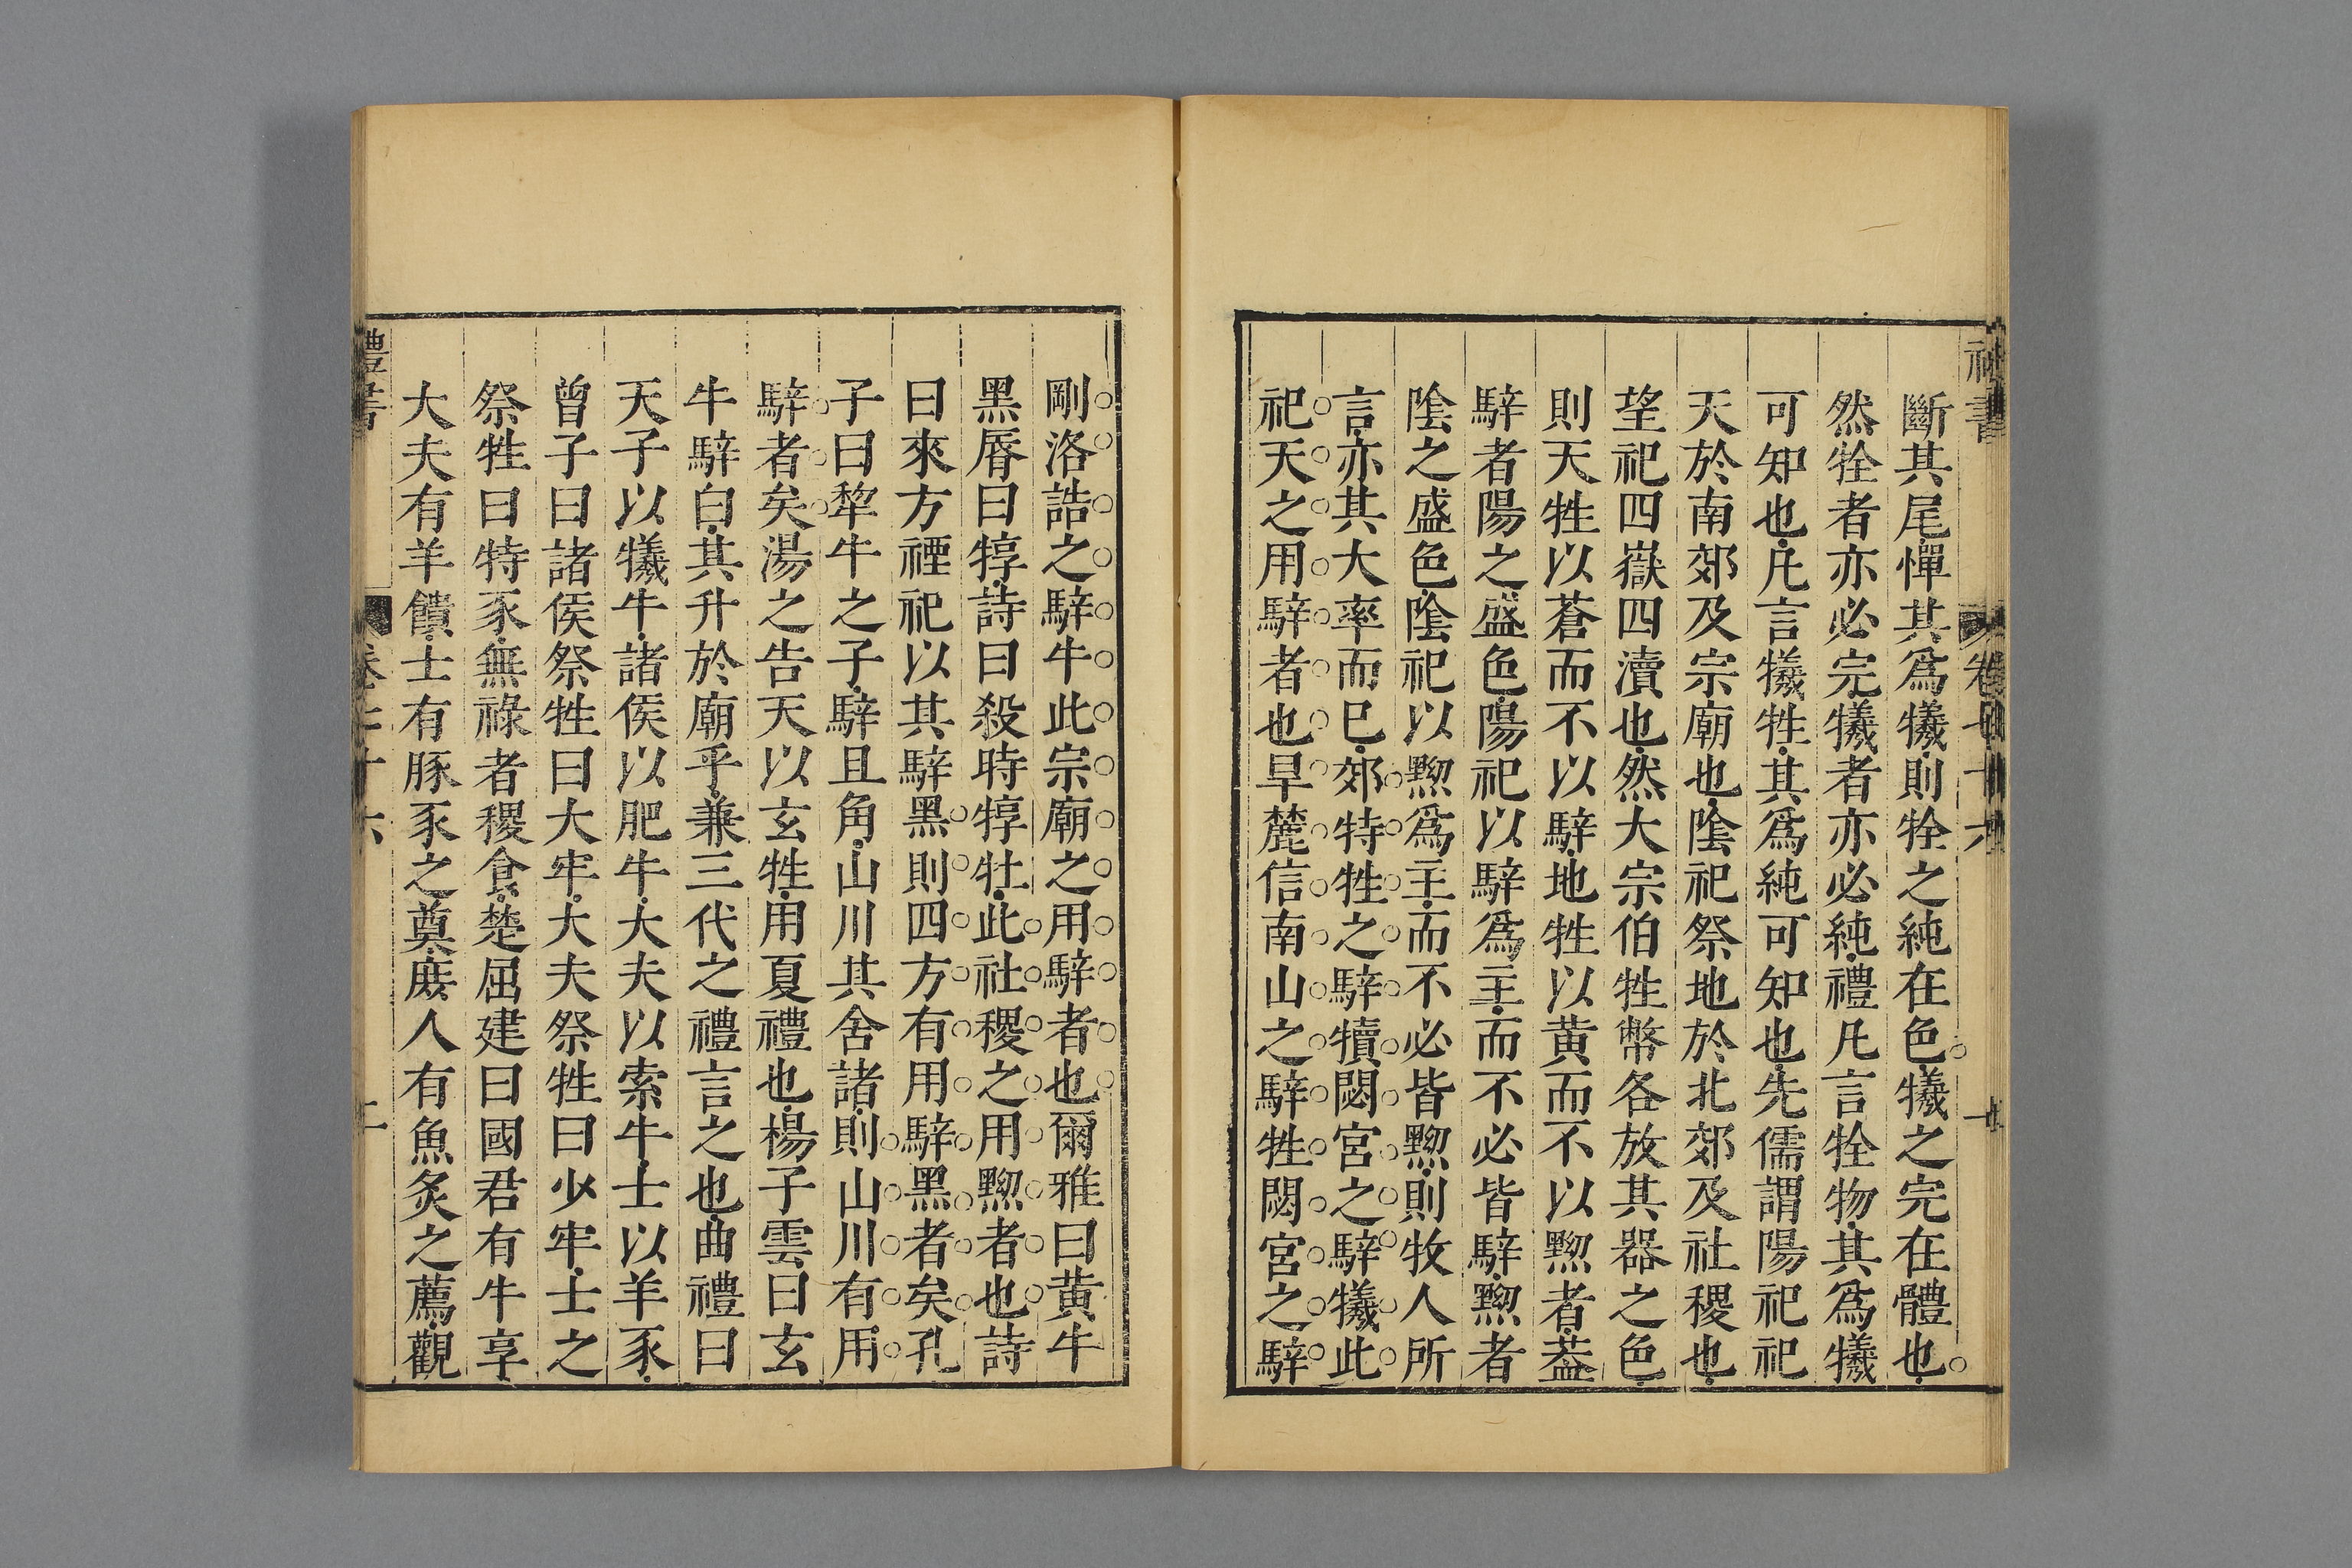 禮書 卷七十六
斷其尾憚其爲犧則牷之純在色犧之完在體也
然牷者亦必完犧者亦必純禮凡言牷物其爲犧
可知也凡言犧牲其爲純可知也先儒謂陽祀祀
天於南郊及宗廟也陰祀祭地於北郊及社稷也
望祀四嶽四瀆也然大宗伯牲幣各放其器之色
則天牲以蒼而不以騂地牲以黃而不以黝者葢
騂者陽之盛色陽祀以騂爲主而不必皆騂黝者
陰之盛色陰祀以黝爲主而不必皆黝則牧人所
言亦其大率而巳郊特牲之騂犢閟宮之騂犧此
祀天之用騂者也旱麓信南山之騂牲閟宮之騂
剛洛誥之騂牛此宗廟之用騂者也爾雅曰黃牛
黑脣曰犉詩曰殺時犉牡此社稷之用黝者也詩
曰來方禋祀以其騂黑則四方有用騂黑者矣孔
子曰犂牛之子騂且角山川其舍諸則山川有用
騂者矣湯之告天以玄牲用夏禮也楊子雲曰玄
牛騂白其升於廟乎兼三代之禮言之也曲禮曰
天子以犧牛諸侯以肥牛大夫以索牛士以羊豕
曾子曰諸侯祭牲曰大牢大夫祭牲曰少牢士之
祭牲曰特豕無祿者稷食楚屈建曰國君有牛享
大夫有羊饋士有豚豕之奠庶人有魚炙之薦觀
禮書 卷七十六 二